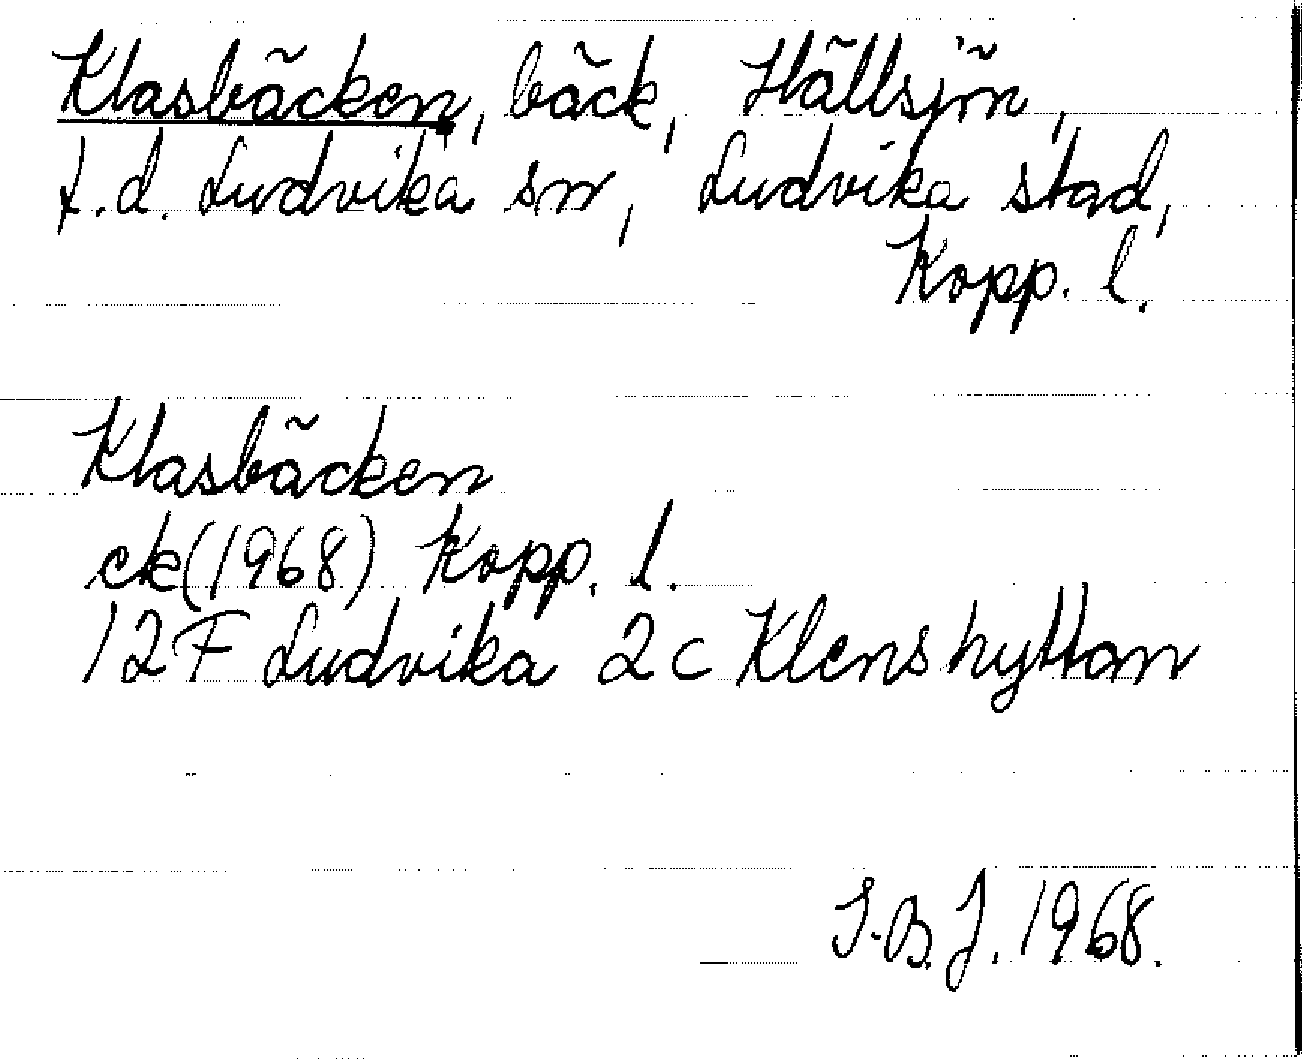 Klasbäcken, bäck, Hällsjön,
f.d. Ludvika sn, Ludvika stad,
Kopp. l.
Klasbäcken
ek(1968) Kopp. l.
12F Ludvika 2c Klenshyttan
I-B.J. 1968.